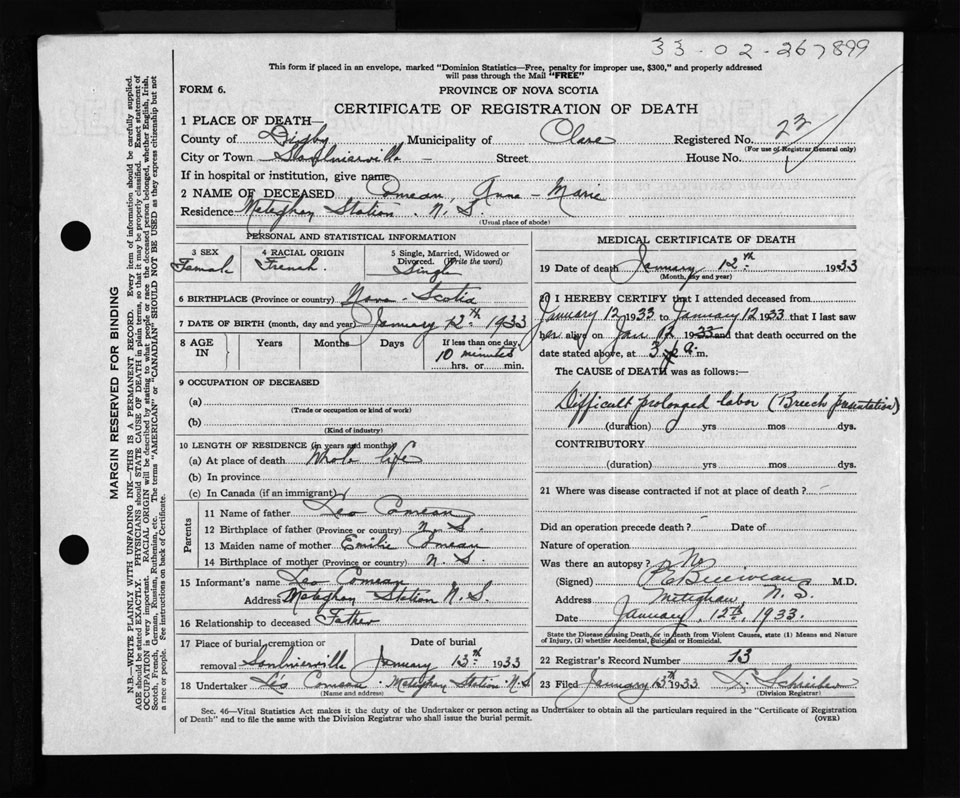 33-02-267899
This form if placed in an envelope, marked "Dominion Statistics—Free, penalty for improper use, $300," and properly addressed
will pass through the Mail "FREE"
FORM 6.
PROVINCE OF NOVA SCOTIA
CERTIFICATE OF REGISTRATION OF DEATH
1 PLACE OF DEATH—
County of Digby Municipality of Clare Registered No. 23
(For use of Registrar General only)
City or Town Saulnierville — Street House No.
If in hospital or institution, give name
2 NAME OF DECEASED Comeau, Anne-Marie
Residence Meteghan Station. N.S.
(Usual place of abode)
PERSONAL AND STATISTICAL INFORMATION
3 SEX
Female
4 RACIAL ORIGIN
French.
5 Single, Married, Widowed or
Divorced. (Write the word)
Single
6 BIRTHPLACE (Province or country) Nova-Scotia
7 DATE OF BIRTH (month, day and year) January 12th 1933
8 AGE
IN
Years
Months
Days
If less than one day
10 minutes
hrs. or min.
9 OCCUPATION OF DECEASED
(a)
(Trade or occupation or kind of work)
(b)
(Kind of industry)
10 LENGTH OF RESIDENCE (in years and months)
(a) At place of death Whole life
(b) In province
(c) In Canada (if an immigrant)
Parents
11 Name of father Leo Comeau
12 Birthplace of father (Province or country) N.S.
13 Maiden name of mother Emilie Comeau
14 Birthplace of mother (Province or country) N.S.
15 Informant's name Leo Comeau
Address Meteghan Station N.S.
16 Relationship to deceased Father
17 Place of burial, cremation or
removal Saulnierville
Date of burial
January 13th 1933
18 Undertaker Leo Comeau. Meteghan Station N.S.
(Name and address)
MEDICAL CERTIFICATE OF DEATH
19 Date of death January 12th 1933
(Month, day and year)
20 I HEREBY CERTIFY that I attended deceased from
January 12 1933 to January 12 1933 that I last saw
her alive on Jan 12 1933 and that death occurred on the
date stated above, at 3 a.m.
The CAUSE of DEATH was as follows:—
Difficult prolonged labor (Breech presentation)
(duration) yrs mos dys.
CONTRIBUTORY
(duration) yrs mos dys.
21 Where was disease contracted if not at place of death?
Did an operation precede death? Date of
Nature of operation
Was there an autopsy? No
(Signed) M.D.
Address Meteghan, N.S.
Date January, 12th, 1933.
State the Disease causing Death, or in death from Violent Causes, state (1) Means and Nature
of Injury, (2) whether Accidental, Suicidal or Homicidal.
22 Registrar's Record Number 13
23 Filed January 13th 1933
(Division Registrar)
Sec. 46—Vital Statistics Act makes it the duty of the Undertaker or person acting as Undertaker to obtain all the particulars required in the "Certificate of Registration
of Death" and to file the same with the Division Registrar who shall issue the burial permit.
(OVER)
MARGIN RESERVED FOR BINDING
N.B.—WRITE PLAINLY WITH UNFADING INK—THIS IS A PERMANENT RECORD. Every item of information should be carefully supplied.
AGE should be stated EXACTLY. PHYSICIANS should STATE CAUSE OF DEATH in plain terms, so that it may be properly classified. Exact statement of
OCCUPATION is very important. RACIAL ORIGIN will be described by stating to what people or race the deceased person belonged, whether English, Irish,
Scotch, French, German, Russian, Ruthenian, etc. The terms "AMERICAN" or "CANADIAN" SHOULD NOT BE USED as they express citizenship but not
a race or people. See instructions on back of Certificate.